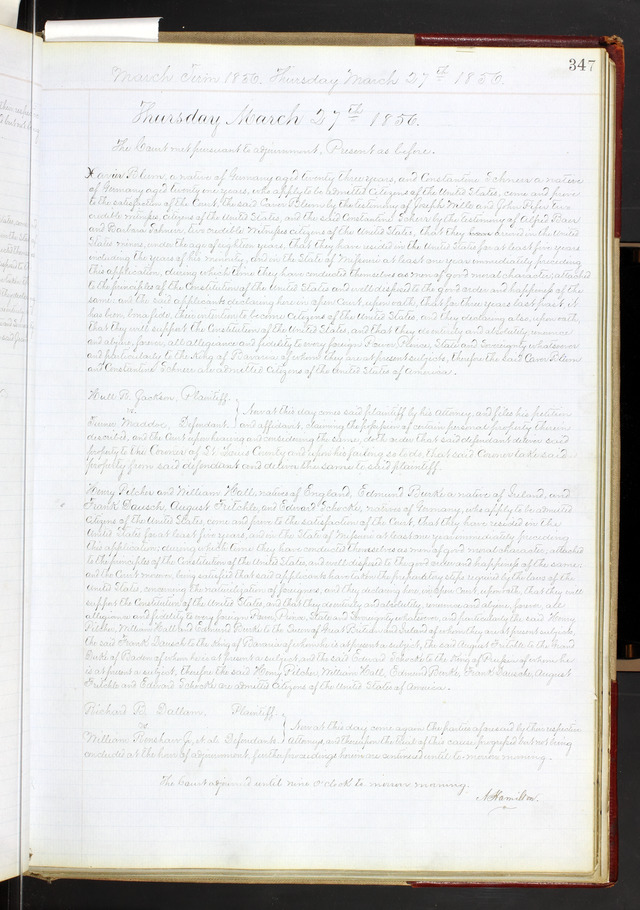 347
March Term 1856. Thursday March 27th 1856.
Thursday March 27th 1856.
The Court met pursuant to adjournment, Present as before.
Xavier Blum, a native of Germany aged twenty three years, and Constantine Schneer a native
of Germany aged twenty one years, who apply to be admitted Citizens of the United States, come and prove
to the satisfaction of the Court, the said Xavier Blum by the testimony of Joseph Wille and John Pifer, two
credible witnesses, citizens of the United States, and the said Constantine Schneer by the testimony of Alfred Baer
and Barbara Schneer, two credible Witnesses citizens of the United States, that they have arrived in the United
States minors, under the age of eighteen years, that they have resided in the United States for at least five years
including the years of his minority, and in the State of Missouri at least one year immediately preceding
this application, during which time they have conducted themselves as men of good moral character, attached
to the principles of the Constitution of the United States and well disposed to the good order and happiness of the
same: and the said applicants declaring here in open Court, upon oath, that for three years last past, it
has been, bona fide, their intention to become Citizens of the United States, and they declaring also, upon oath,
that they will support the Constitution of the United States, and that they do entirely and absolutely renounce
and abjure forever, all allegiance and fidelity to every foreign Power, Prince, State and Sovereignty whatsoever
and particularly to the King of Bavaria of whom they are at present subjects, therefore the said Xavier Blum
and Constantine Schneer are admitted Citizens of the United States of America.
Hull R. Jackson, Plaintiff.
vs. Now at this day comes said plaintiff by his Attorney, and files his petition
Maddox, Defendant. and affidavit, claiming the possession of certain personal property therein
described, and the Court upon hearing and considering the same, doth order that said defendant deliver said
property to the Coroner of St. Louis County and upon his failing so to do, that said Coroner take said
property from said defendant and deliver the same to said plaintiff.
Henry Pilcher and William Hall, natives of England, Edmund Burke a native of Ireland, and
Frank Dausch, August Fritchle, and Edward Schocke, natives of Germany, who apply to be admitted
Citizens of the United States, come and prove to the satisfaction of the Court, that they have resided in the
United States for at least five years, and in the State of Missouri at least one year immediately preceding
this application, during which time they have conducted themselves as men of good moral character, attached
to the principles of the Constitution of the United States, and well disposed to the good order and happiness of the same;
and the Court moreover, being satisfied that said applicants have taken the preparatory steps required by the laws of the
United States, concerning the naturalization of foreigners, and they declaring here in Open Court, upon oath, that they will
support the Constitution of the United States, and that they do entirely and absolutely, renounce and abjure, forever, all
allegiance and fidelity to every foreign Power, Prince, State and Sovereignty whatsoever, and particularly the said Henry
Pilcher, William Hall and Edmund Burke to the Queen of Great Britain and Ireland of whom they are at present subjects,
the said Frank Dausch to the King of Bavaria of whom he is at present a subject, the said August Fritchle to the Grand
Duke of Baden of whom he is at present a subject, and the said Edward Schocke to the King of Prussia of whom he
is at present a subject, therefore the said Henry Pilcher, William Hall, Edmund Burke, Frank Dausch, August
Fritchle and Edward Schocke are admitted Citizens of the United States of America.
Richard B. Dallam, Plaintiff.
vs. Now at this day come again the parties aforesaid by their respective
William Renshaw Jr. et al. Defendants. Attorneys, and thereupon the trial of this cause progressed but not being
concluded at the hour of adjournment, further proceedings hereon are continued until to morrow morning.
The Court adjourned until nine o'clock to morrow morning.
A Hamilton.